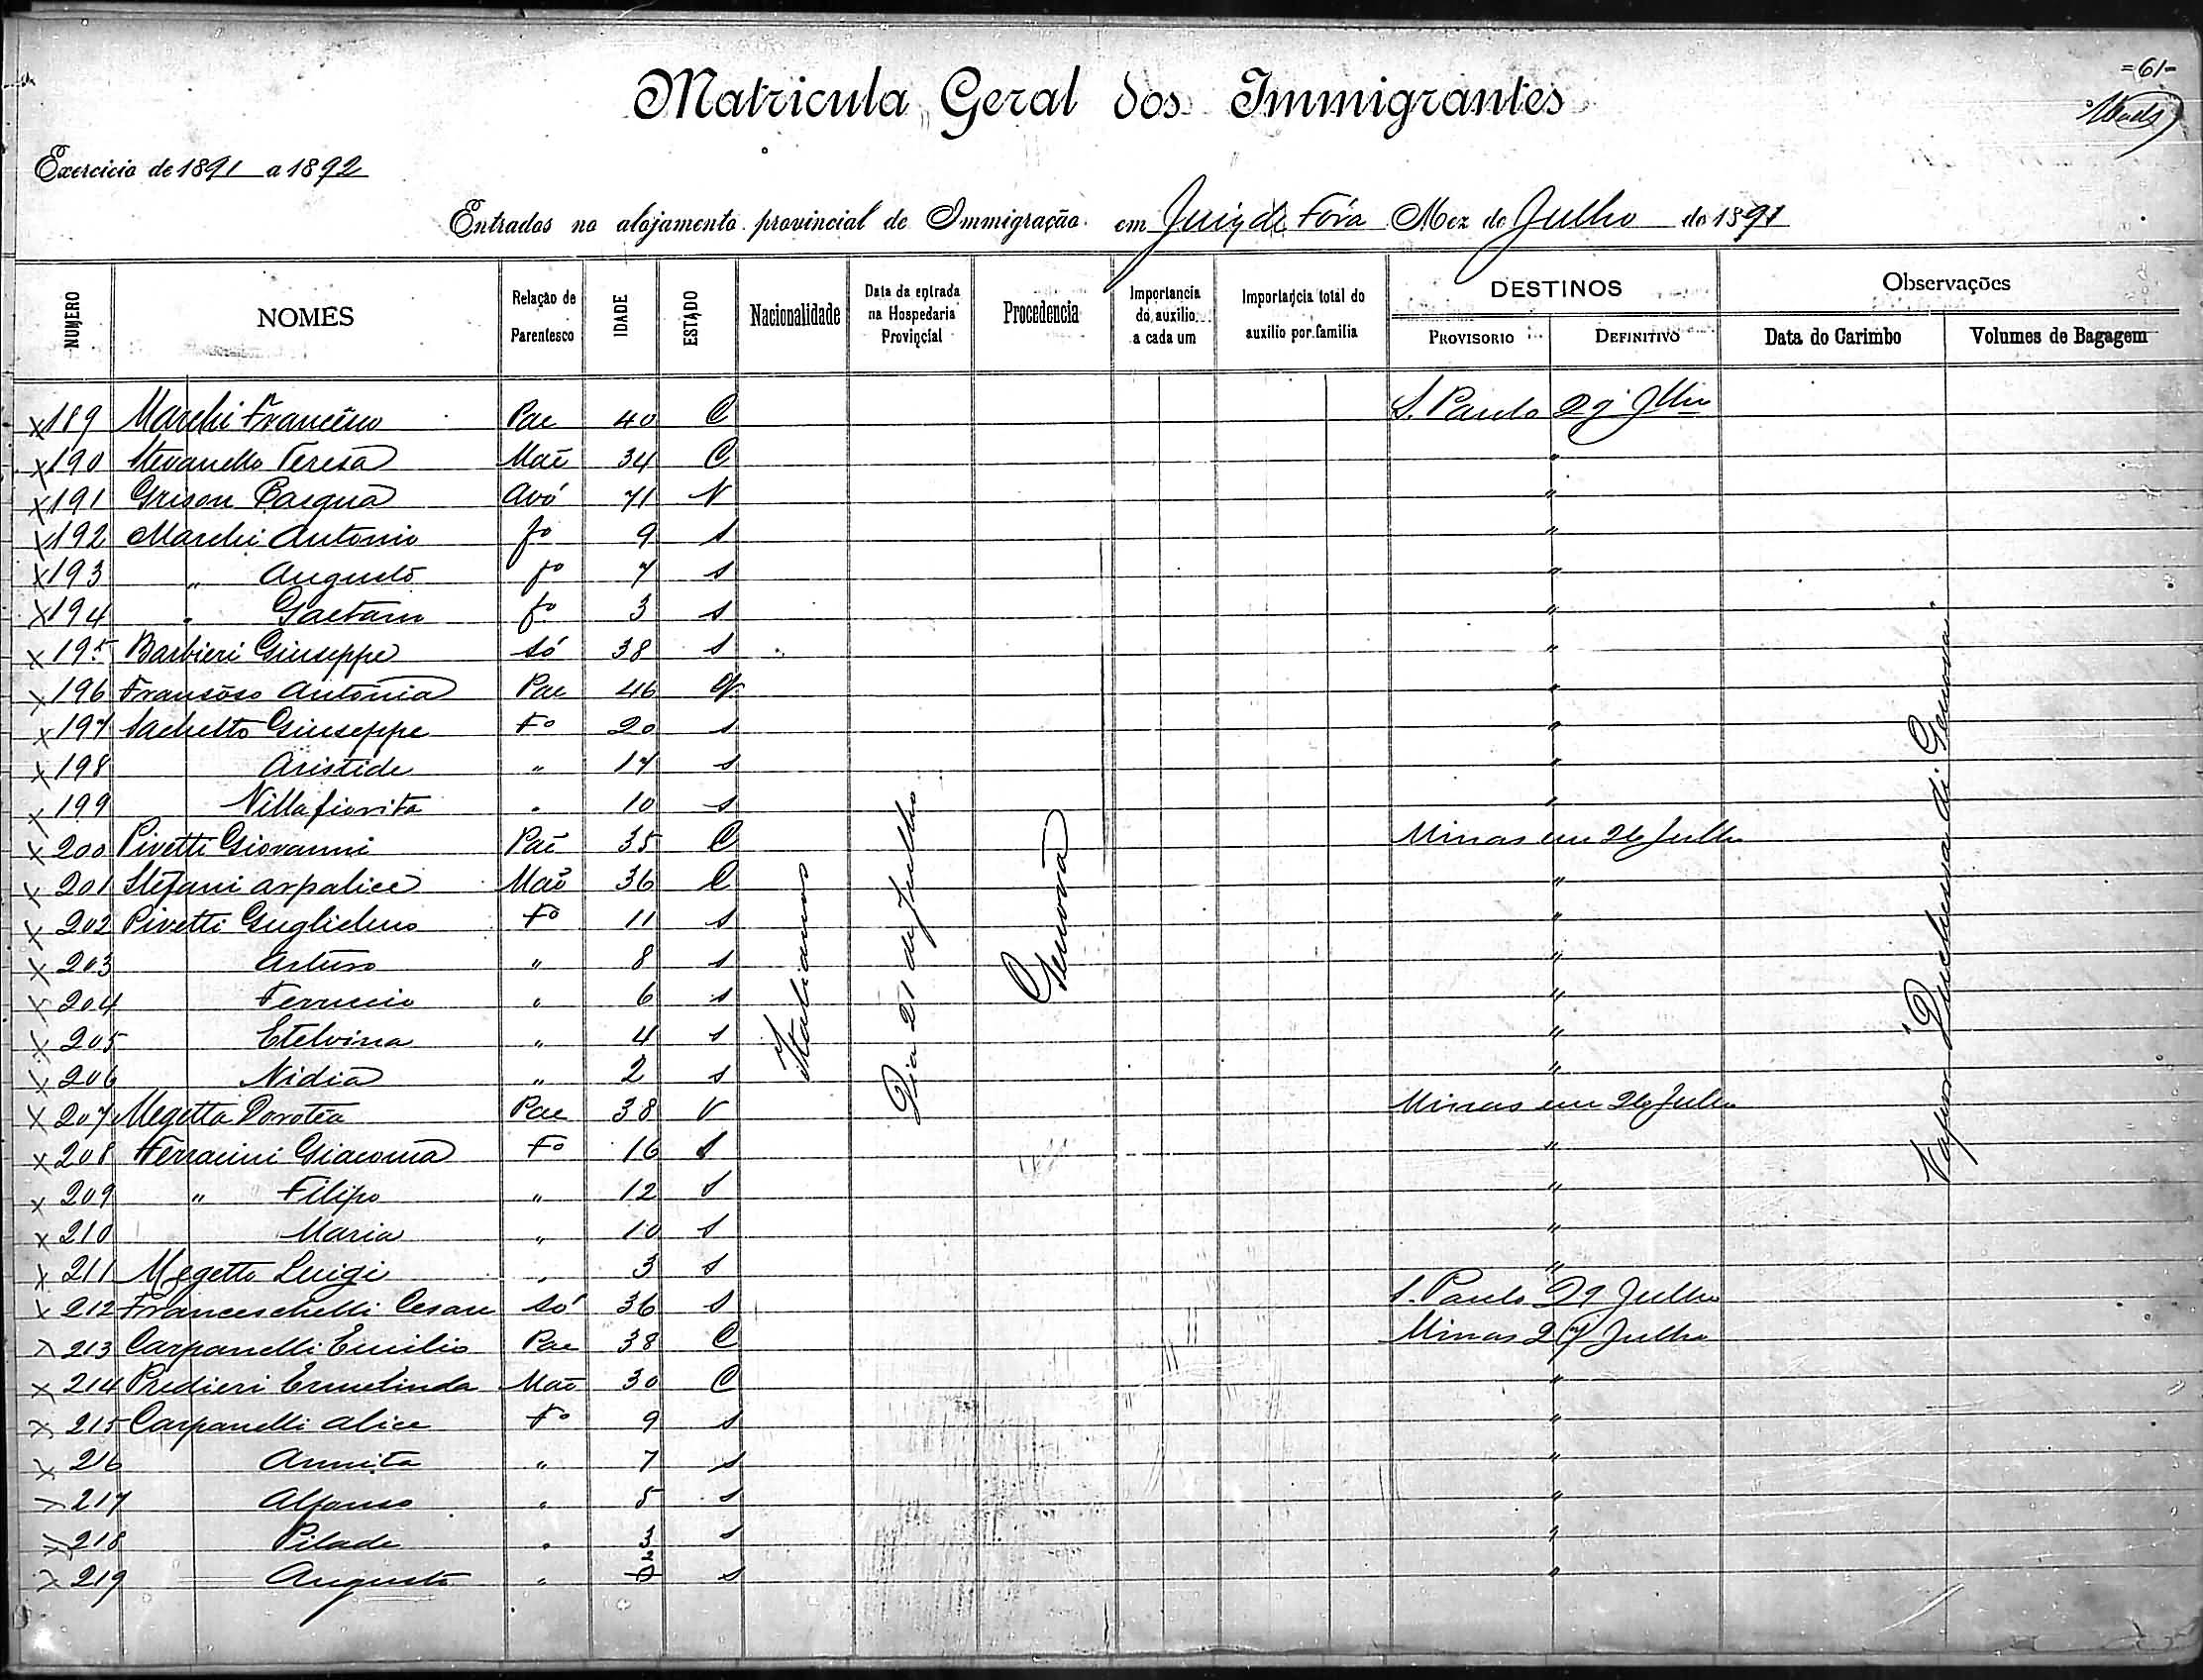 =61=
Matricula Geral dos Immigrantes
Exercicio de 1891 a 1892
Entrados no alojamento provincial de Immigração em Juiz de Fóra Mez de Julho de 1891
NUMERO NOMES Relação de Parentesco IDADE ESTADO Nacionalidade Data da entrada na Hospedaria Provincial Procedencia Importancia do auxilio a cada um Importancia total do auxilio por familia DESTINOS PROVISORIO DEFINITIVO Observações Data do Carimbo Volumes de Bagagem
x 189 Marchi Francesco Pae 40 C S. Paulo 29 Julho
x 190 Stevanello Teresa Maẽ 34 C "
x 191 Grison Pasqua Avó 71 V "
x 192 Marchi Antonio fo 9 s "
x 193 " Augusto fo 7 s "
x 194 " Gaetano fo 3 s "
x 195 Barbieri Giuseppe Só 38 s "
x 196 Fransoso Antonia Pae 46 V "
x 197 Sachetto Giuseppe Fo 20 s "
x 198 Aristide " 17 s "
x 199 Villafiorita " 10 s "
x 200 Pivetti Giovanni Paẽ 35 C Minas em 26 Julho
x 201 Stefani Arpalice Maẽ 36 C "
x 202 Pivetti Guglielmo Fo 11 s "
x 203 Arturo " 8 s "
x 204 Ferruccio " 6 s "
x 205 Etelvina " 4 s "
x 206 Nidia " 2 s "
x 207 Megetta Dorotea Pae 38 V Minas em 26 Julho
x 208 Ferracini Giacoma Fo 16 S "
x 209 " Filipo " 12 S "
x 210 Maria " 10 S "
x 211 Megetto Luigi " 3 S "
x 212 Franceschelli Cesare Só 36 S S. Paulo 29 Julho
x 213 Carpanelli Emilio Pae 38 C Minas 27 Julho
x 214 Predieri Ermelinda Maẽ 30 C "
x 215 Carpanelli Alice Fo 9 s "
x 216 Annita " 7 s "
x 217 Alfonso " 5 s "
x 218 Pilade " 3 s "
x 219 Augusta " s "
Italianos
Dia 21 de Julho
Genova
Vapor "Duchessa di Genova"